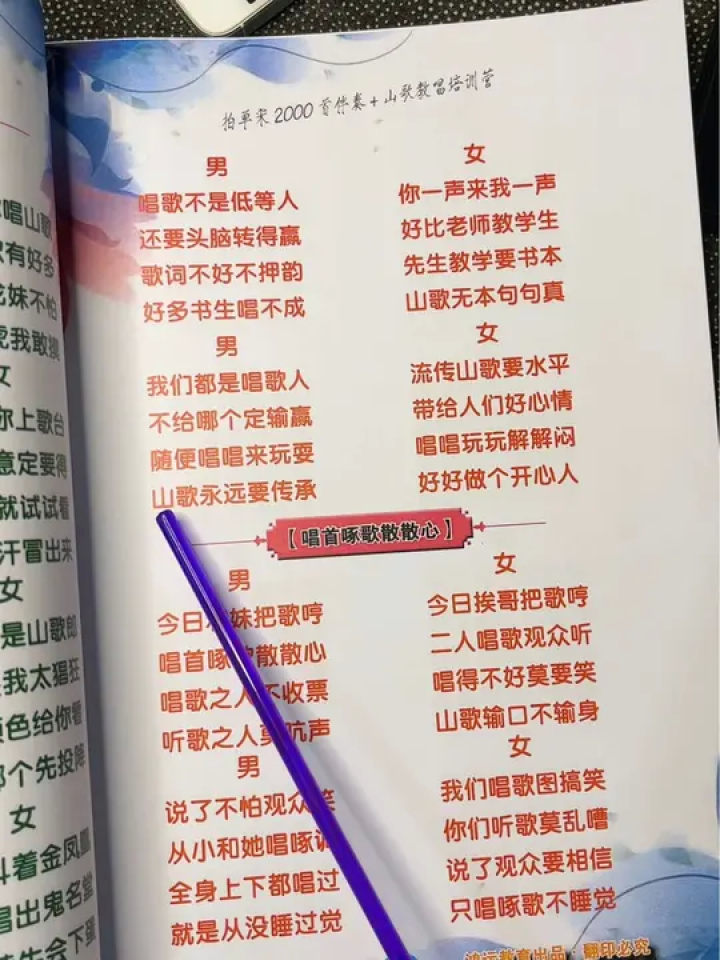 唱山歌
有好多
妹不怕
我敢摸
女
你上歌台
意定要得
就试试看
汗冒出来
女
是山歌郎
我太猖狂
颜色给你看
那个先投降
女
斗着金凤凰
唱出鬼名堂
先会下蛋
2000首伴奏+山歌教唱培训营
男
唱歌不是低等人
还要头脑转得赢
歌词不好不押韵
好多书生唱不成
女
你一声来我一声
好比老师教学生
先生教学要书本
山歌无本句句真
男
我们都是唱歌人
不给哪个定输赢
随便唱唱来玩耍
山歌永远要传承
女
流传山歌要水平
带给人们好心情
唱唱玩玩解解闷
好好做个开心人
【唱首啄歌散散心】
男
今日 妹把歌哼
唱首啄 散散心
唱歌之人不收票
听歌之人莫吭声
女
今日挨哥把歌哼
二人唱歌观众听
唱得不好莫要笑
山歌输口不输身
男
说了不怕观众笑
从小和她唱啄
全身上下都唱过
就是从没睡过觉
女
我们唱歌图搞笑
你们听歌莫乱嘈
说了观众要相信
只唱啄歌不睡觉
鸿运教育出品：翻印必究